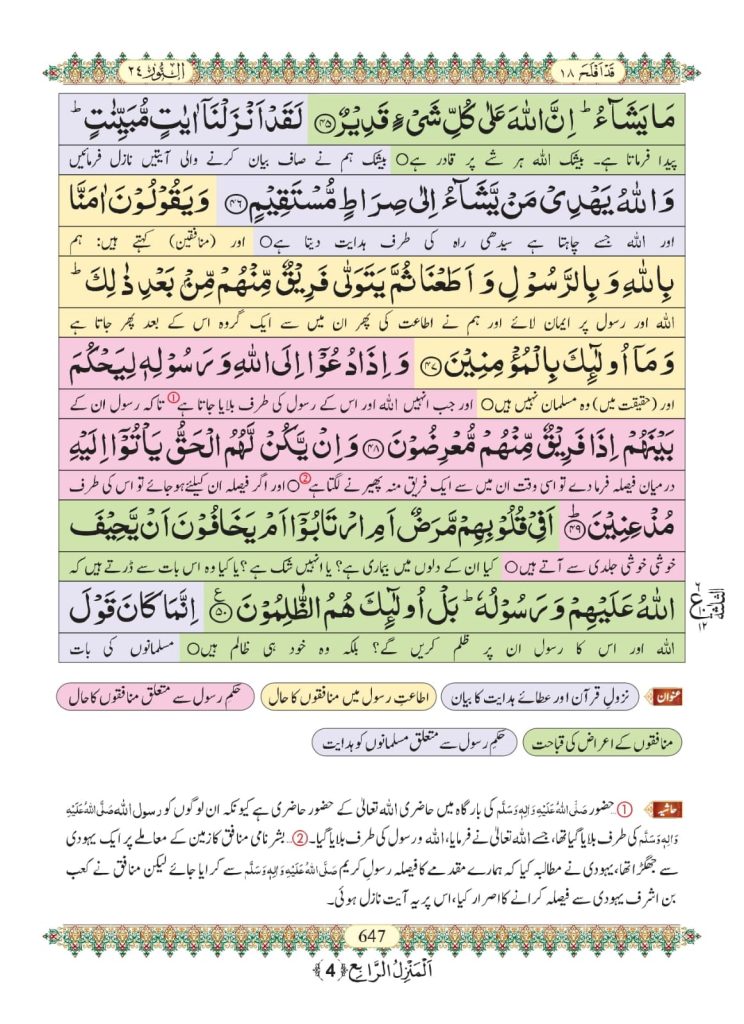 قَدْ اَفْلَحَ ۱۸
اَلنُّوْر ۲٤
مَا یَشَآءُ ؕ اِنَّ اللّٰهَ عَلٰى كُلِّ شَیْءٍ قَدِیْرٌ ﴿۴۵﴾ لَقَدْ اَنْزَلْنَاۤ اٰیٰتٍ مُّبَیِّنٰتٍ ؕ
پیدا فرماتا ہے۔ بیشک اللہ ہر شے پر قادر ہے○ بیشک ہم نے صاف بیان کرنے والی آیتیں نازل فرمائیں
وَ اللّٰهُ یَهْدِیْ مَنْ یَّشَآءُ اِلٰى صِرَاطٍ مُّسْتَقِیْمٍ ﴿۴۶﴾ وَ یَقُوْلُوْنَ اٰمَنَّا
اور اللہ جسے چاہتا ہے سیدھی راہ کی طرف ہدایت دیتا ہے○ اور (منافقین) کہتے ہیں: ہم
بِاللّٰهِ وَ بِالرَّسُوْلِ وَ اَطَعْنَا ثُمَّ یَتَوَلّٰى فَرِیْقٌ مِّنْهُمْ مِّنْۢ بَعْدِ ذٰلِكَ ؕ
اللہ اور رسول پر ایمان لائے اور ہم نے اطاعت کی پھر ان میں سے ایک گروہ اس کے بعد پھر جاتا ہے
وَ مَاۤ اُولٰٓىٕكَ بِالْمُؤْمِنِیْنَ ﴿۴۷﴾ وَ اِذَا دُعُوْۤا اِلَى اللّٰهِ وَ رَسُوْلِهٖ لِیَحْكُمَ
اور (حقیقت میں) وہ مسلمان نہیں ہیں○ اور جب انہیں اللہ اور اس کے رسول کی طرف بلایا جاتا ہے① تاکہ رسول ان کے
بَیْنَهُمْ اِذَا فَرِیْقٌ مِّنْهُمْ مُّعْرِضُوْنَ ﴿۴۸﴾ وَ اِنْ یَّكُنْ لَّهُمُ الْحَقُّ یَاْتُوْۤا اِلَیْهِ
درمیان فیصلہ فرمادے تو اسی وقت ان میں سے ایک فریق منہ پھیرنے لگتا ہے②○ اور اگر فیصلہ ان کیلئے ہوجائے تو اس کی طرف
مُذْعِنِیْنَ ﴿۴۹﴾ؕ اَفِیْ قُلُوْبِهِمْ مَّرَضٌ اَمِ ارْتَابُوْۤا اَمْ یَخَافُوْنَ اَنْ یَّحِیْفَ
خوشی خوشی جلدی سے آتے ہیں○ کیا ان کے دلوں میں بیماری ہے؟ یا انہیں شک ہے؟ یا کیا وہ اس بات سے ڈرتے ہیں کہ
اللّٰهُ عَلَیْهِمْ وَ رَسُوْلُهٗ ؕ بَلْ اُولٰٓىٕكَ هُمُ الظّٰلِمُوْنَ ﴿۵۰﴾ع اِنَّمَا كَانَ قَوْلَ
اللہ اور اس کا رسول ان پر ظلم کریں گے؟ بلکہ وہ خود ہی ظالم ہیں○ مسلمانوں کی بات
عنوان نزولِ قرآن اور عطائے ہدایت کا بیان اطاعتِ رسول میں منافقوں کا حال حکمِ رسول سے متعلق منافقوں کا حال
منافقوں کے اعراض کی قباحت حکمِ رسول سے متعلق مسلمانوں کو ہدایت
حاشیہ ①...حضور صَلَّی اللّٰہُ عَلَیْہِ وَاٰلِہٖ وَسَلَّم کی بارگاہ میں حاضری اللہ تعالیٰ کے حضور حاضری ہے کیونکہ ان لوگوں کو رسول اللہ صَلَّی اللّٰہُ عَلَیْہِ
وَاٰلِہٖ وَسَلَّم کی طرف بلایا گیا تھا، جسے اللہ تعالیٰ نے فرمایا، اللہ و رسول کی طرف بلایا گیا۔ ②...بشر نامی منافق کا زمین کے معاملے پر ایک یہودی
سے جھگڑا تھا، یہودی نے مطالبہ کیا کہ ہمارے مقدمے کا فیصلہ رسولِ کریم صَلَّی اللّٰہُ عَلَیْہِ وَاٰلِہٖ وَسَلَّم سے کرایا جائے لیکن منافق نے کعب
بن اشرف یہودی سے فیصلہ کرانے کا اصرار کیا، اس پر یہ آیت نازل ہوئی۔
647
اَلْمَنْزِلُ الرَّابِع ﴿4﴾